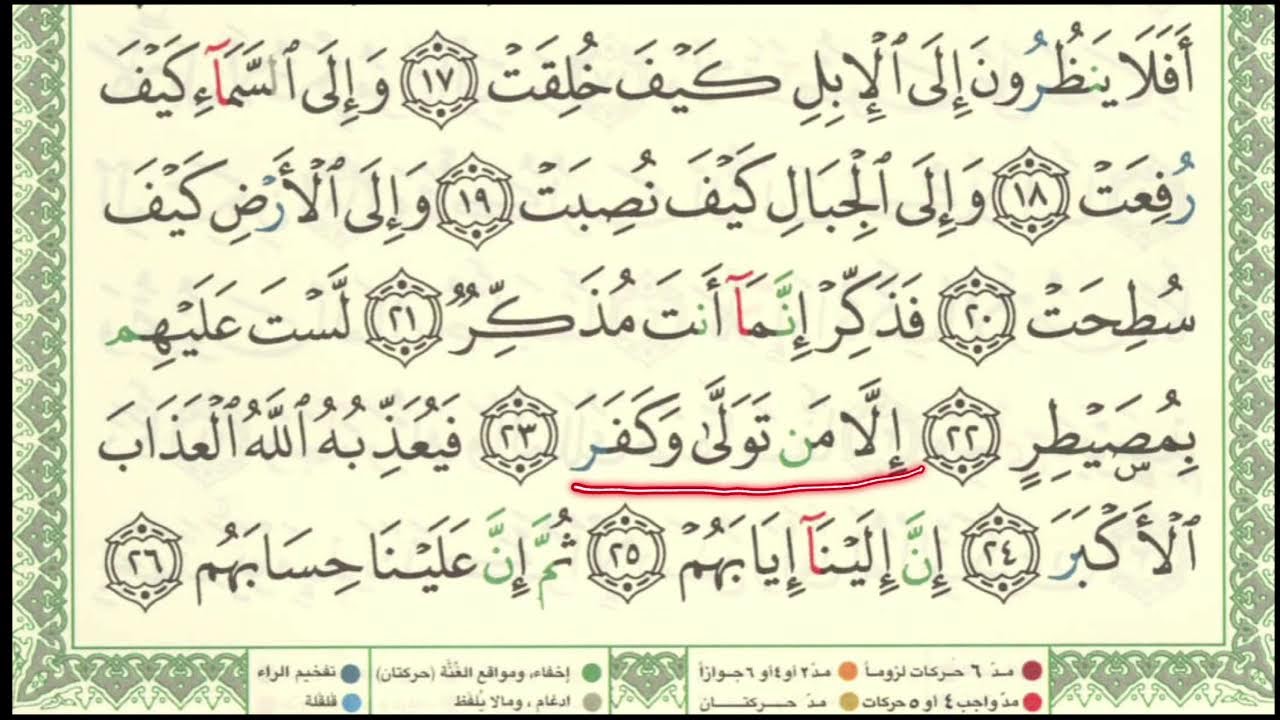 أَفَلَا يَنظُرُونَ إِلَى ٱلْإِبِلِ كَيْفَ خُلِقَتْ ١٧ وَإِلَى ٱلسَّمَآءِ كَيْفَ
رُفِعَتْ ١٨ وَإِلَى ٱلْجِبَالِ كَيْفَ نُصِبَتْ ١٩ وَإِلَى ٱلْأَرْضِ كَيْفَ
سُطِحَتْ ٢٠ فَذَكِّرْ إِنَّمَآ أَنتَ مُذَكِّرٌ ٢١ لَّسْتَ عَلَيْهِم
بِمُصَيْطِرٍ ٢٢ إِلَّا مَن تَوَلَّىٰ وَكَفَرَ ٢٣ فَيُعَذِّبُهُ ٱللَّهُ ٱلْعَذَابَ
ٱلْأَكْبَرَ ٢٤ إِنَّ إِلَيْنَآ إِيَابَهُمْ ٢٥ ثُمَّ إِنَّ عَلَيْنَا حِسَابَهُم ٢٦
مدّ ٦ حركات لزوماً مدّ ٢ أو ٤ أو ٦ جوازاً إخفاء، ومواقع الغُنَّة (حركتان) تفخيم الراء
مدّ واجب ٤ أو ٥ حركات مدّ حركتان ادغام ، ومالا يُلفَظ قلقلة